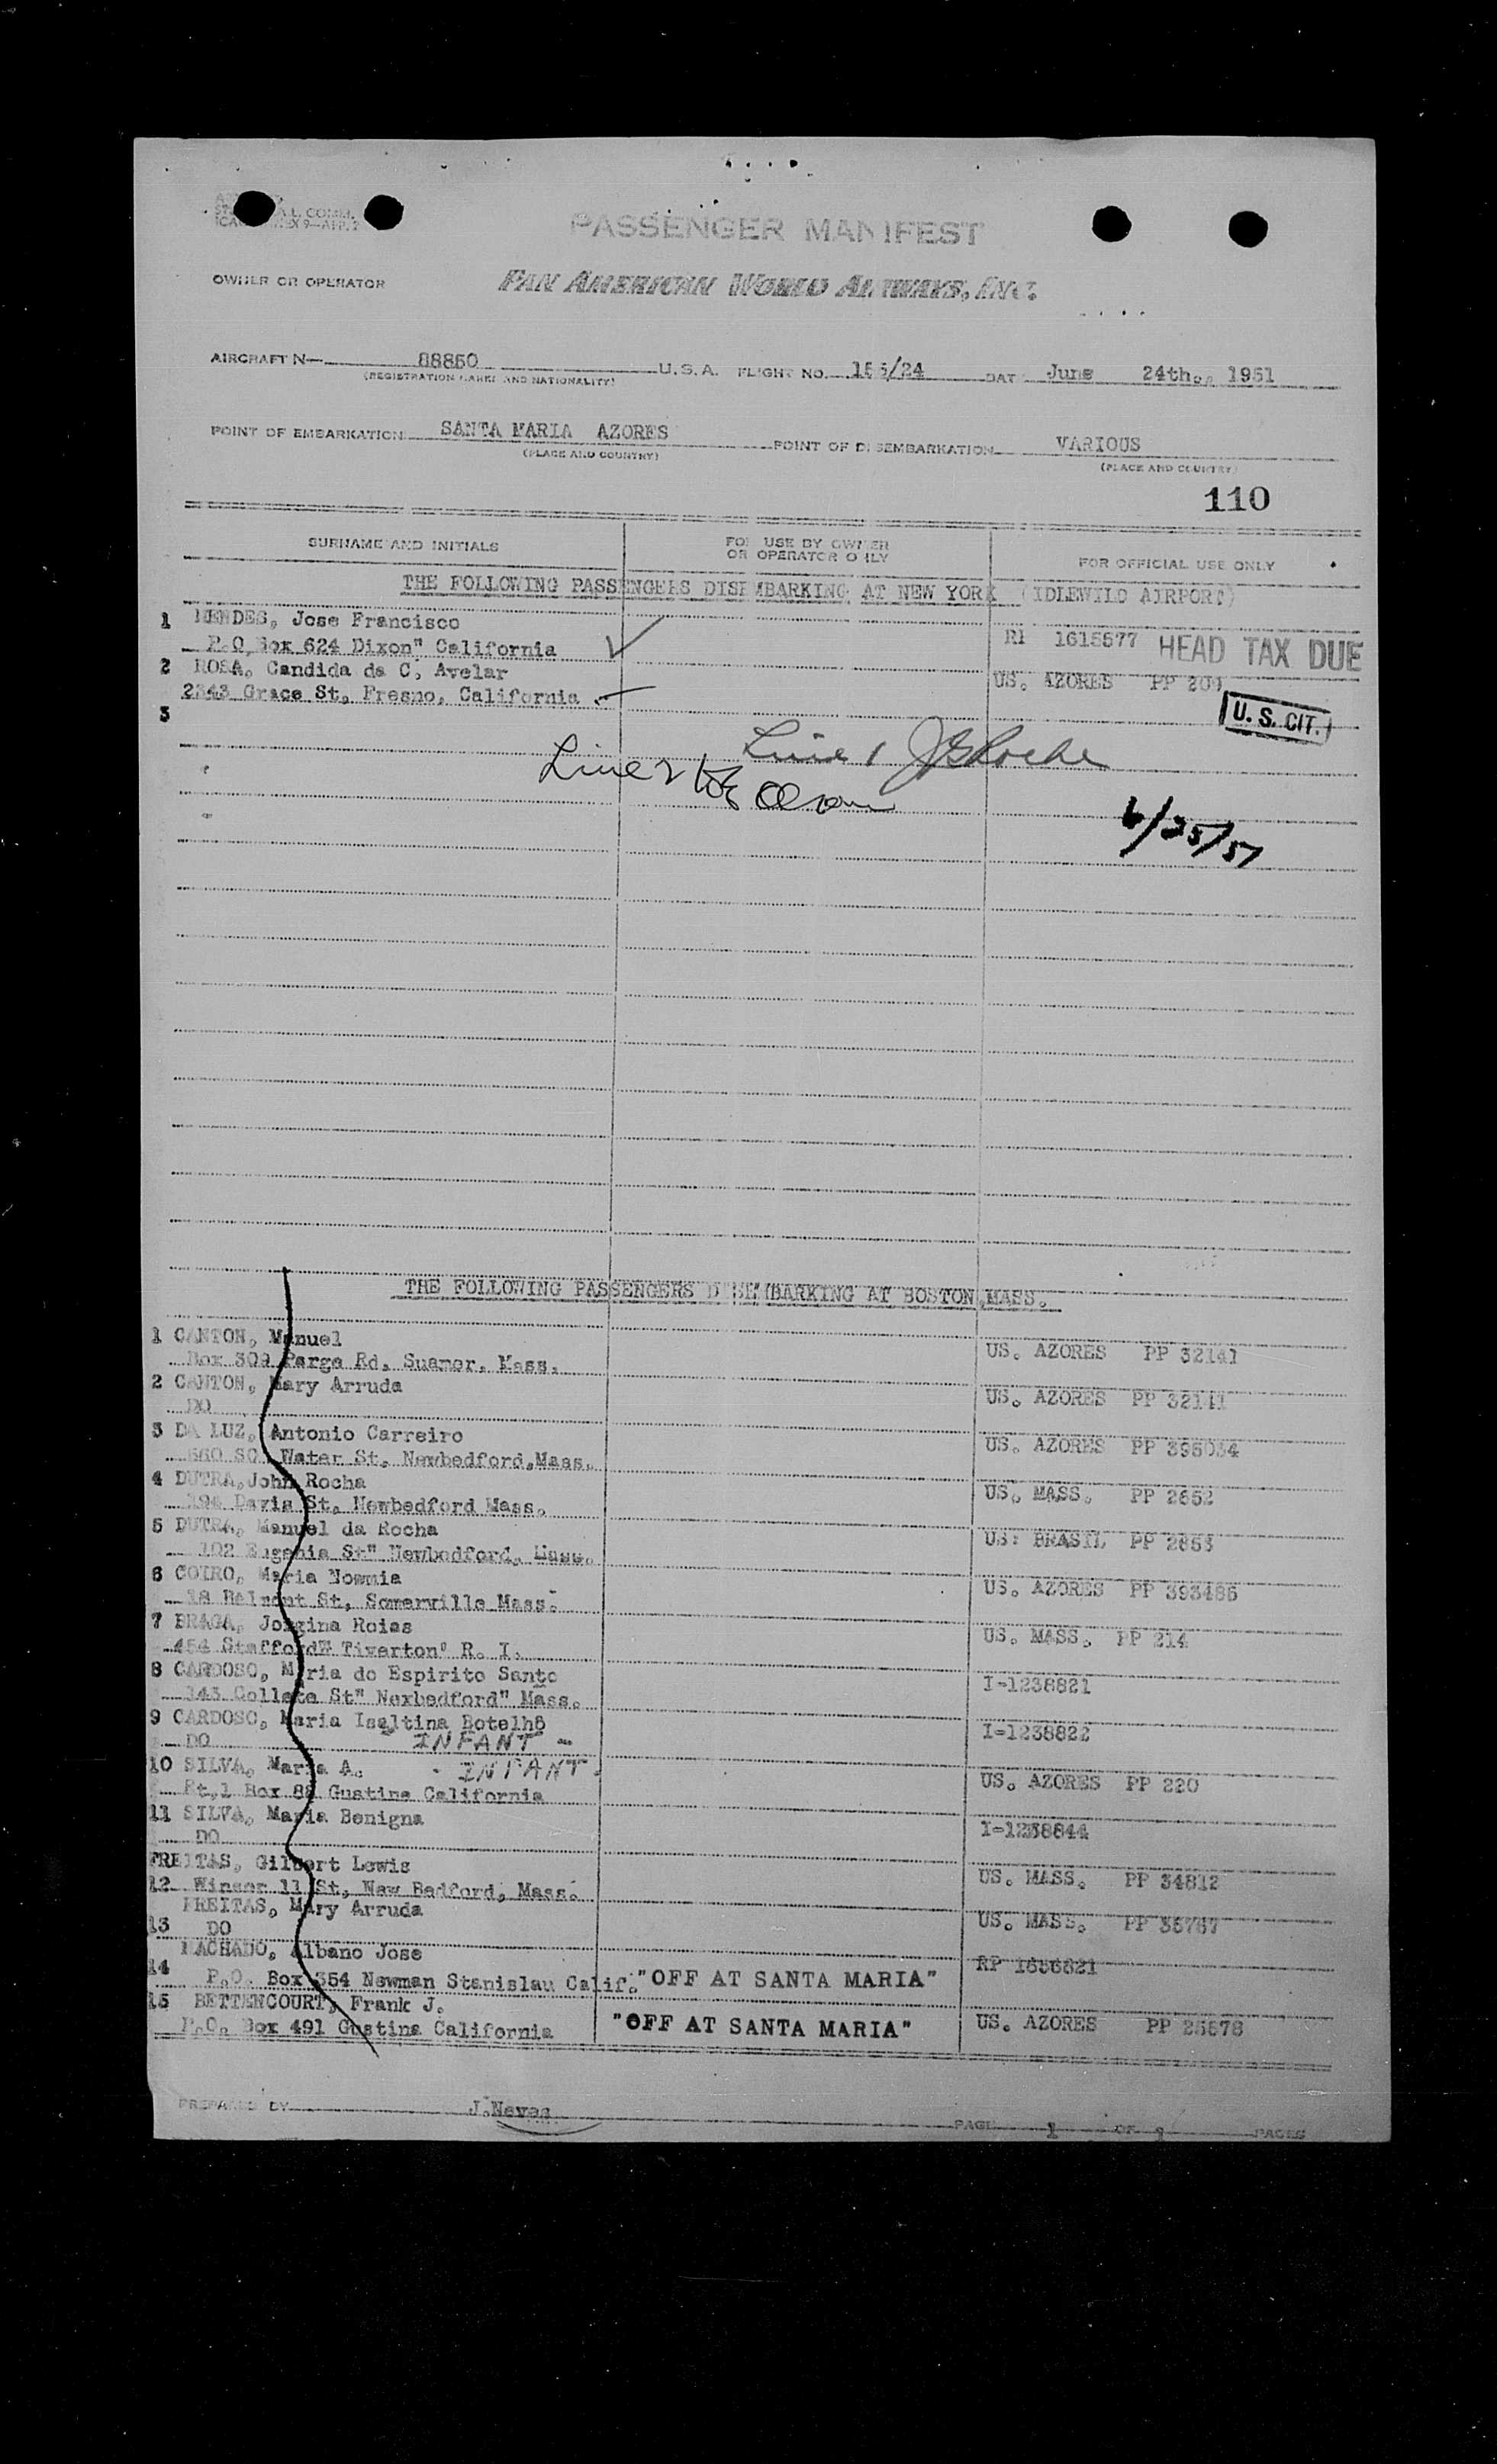 PASSENGER MANIFEST
OWNER OR OPERATOR PAN AMERICAN WORLD AIRWAYS, INC.
AIRCRAFT N— 88860 U.S.A. FLIGHT NO. 155/24 DAT June 24th., 1951
(REGISTRATION MARKS AND NATIONALITY)
POINT OF EMBARKATION SANTA MARIA AZORES POINT OF DISEMBARKATION VARIOUS
(PLACE AND COUNTRY) (PLACE AND COUNTRY)
110
SURNAME AND INITIALS FOR USE BY OWNER OR OPERATOR ONLY FOR OFFICIAL USE ONLY
THE FOLLOWING PASSENGERS DISEMBARKING AT NEW YORK (IDLEWILD AIRPORT)
1 MENDES, Jose Francisco
P.O,Box 624 Dixon" California RI 1615577 HEAD TAX DUE
2 ROSA, Candida de C, Avelar US. AZORES PP 209
2343 Grace St, Fresno, California
U.S. CIT.
3
Line 1 J Roche
Line 2 Olson
6/25/51
THE FOLLOWING PASSENGERS DISEMBARKING AT BOSTON,MASS.
1 CANTON, Manuel US. AZORES PP 32141
Box 309 Parge Rd, Suamor, Mass.
2 CANTON, Mary Arruda US. AZORES PP 32141
DO
3 DA LUZ, Antonio Carreiro US. AZORES PP 395034
660 SO. Water St, Newbedford,Mass.
4 DUTRA,John Rocha US. MASS. PP 2652
194 Davis St, Newbedford Mass.
5 DUTRA, Manuel da Rocha US: BRASIL PP 2853
102 Eugenia St" Newbedford, Mass.
6 COIRO, Maria Noemia US. AZORES PP 393486
18 Belmont St, Somerville Mass.
7 BRAGA, Jorgina Roias US. MASS. PP 214
454 Stafford" Tiverton' R. I.
8 CARDOSO, Maria do Espirito Santo I-1238821
343 Collete St" Nexbedford" Mass.
9 CARDOSO, Maria Iseltina Botelho I-1238822
DO INFANT -
10 SILVA, Maria A. - INFANT. US. AZORES PP 220
Rt,1 Box 88 Gustine California
11 SILVA, Maria Benigna I-1238844
DO
FREITAS, Gilbert Lewis US. MASS. PP 34812
12 Winser 11 St, New Bedford, Mass.
FREITAS, Mary Arruda US. MASS. PP 35767
13 DO
MACHADO, Albano Jose RP 1656821
14 P.O. Box 354 Newman Stanislau Calif. "OFF AT SANTA MARIA"
15 BETTENCOURT, Frank J. US. AZORES PP 25878
P.O, Box 491 Gustine California "OFF AT SANTA MARIA"
PREPARED BY J.Neves PAGE 1 OF PAGES